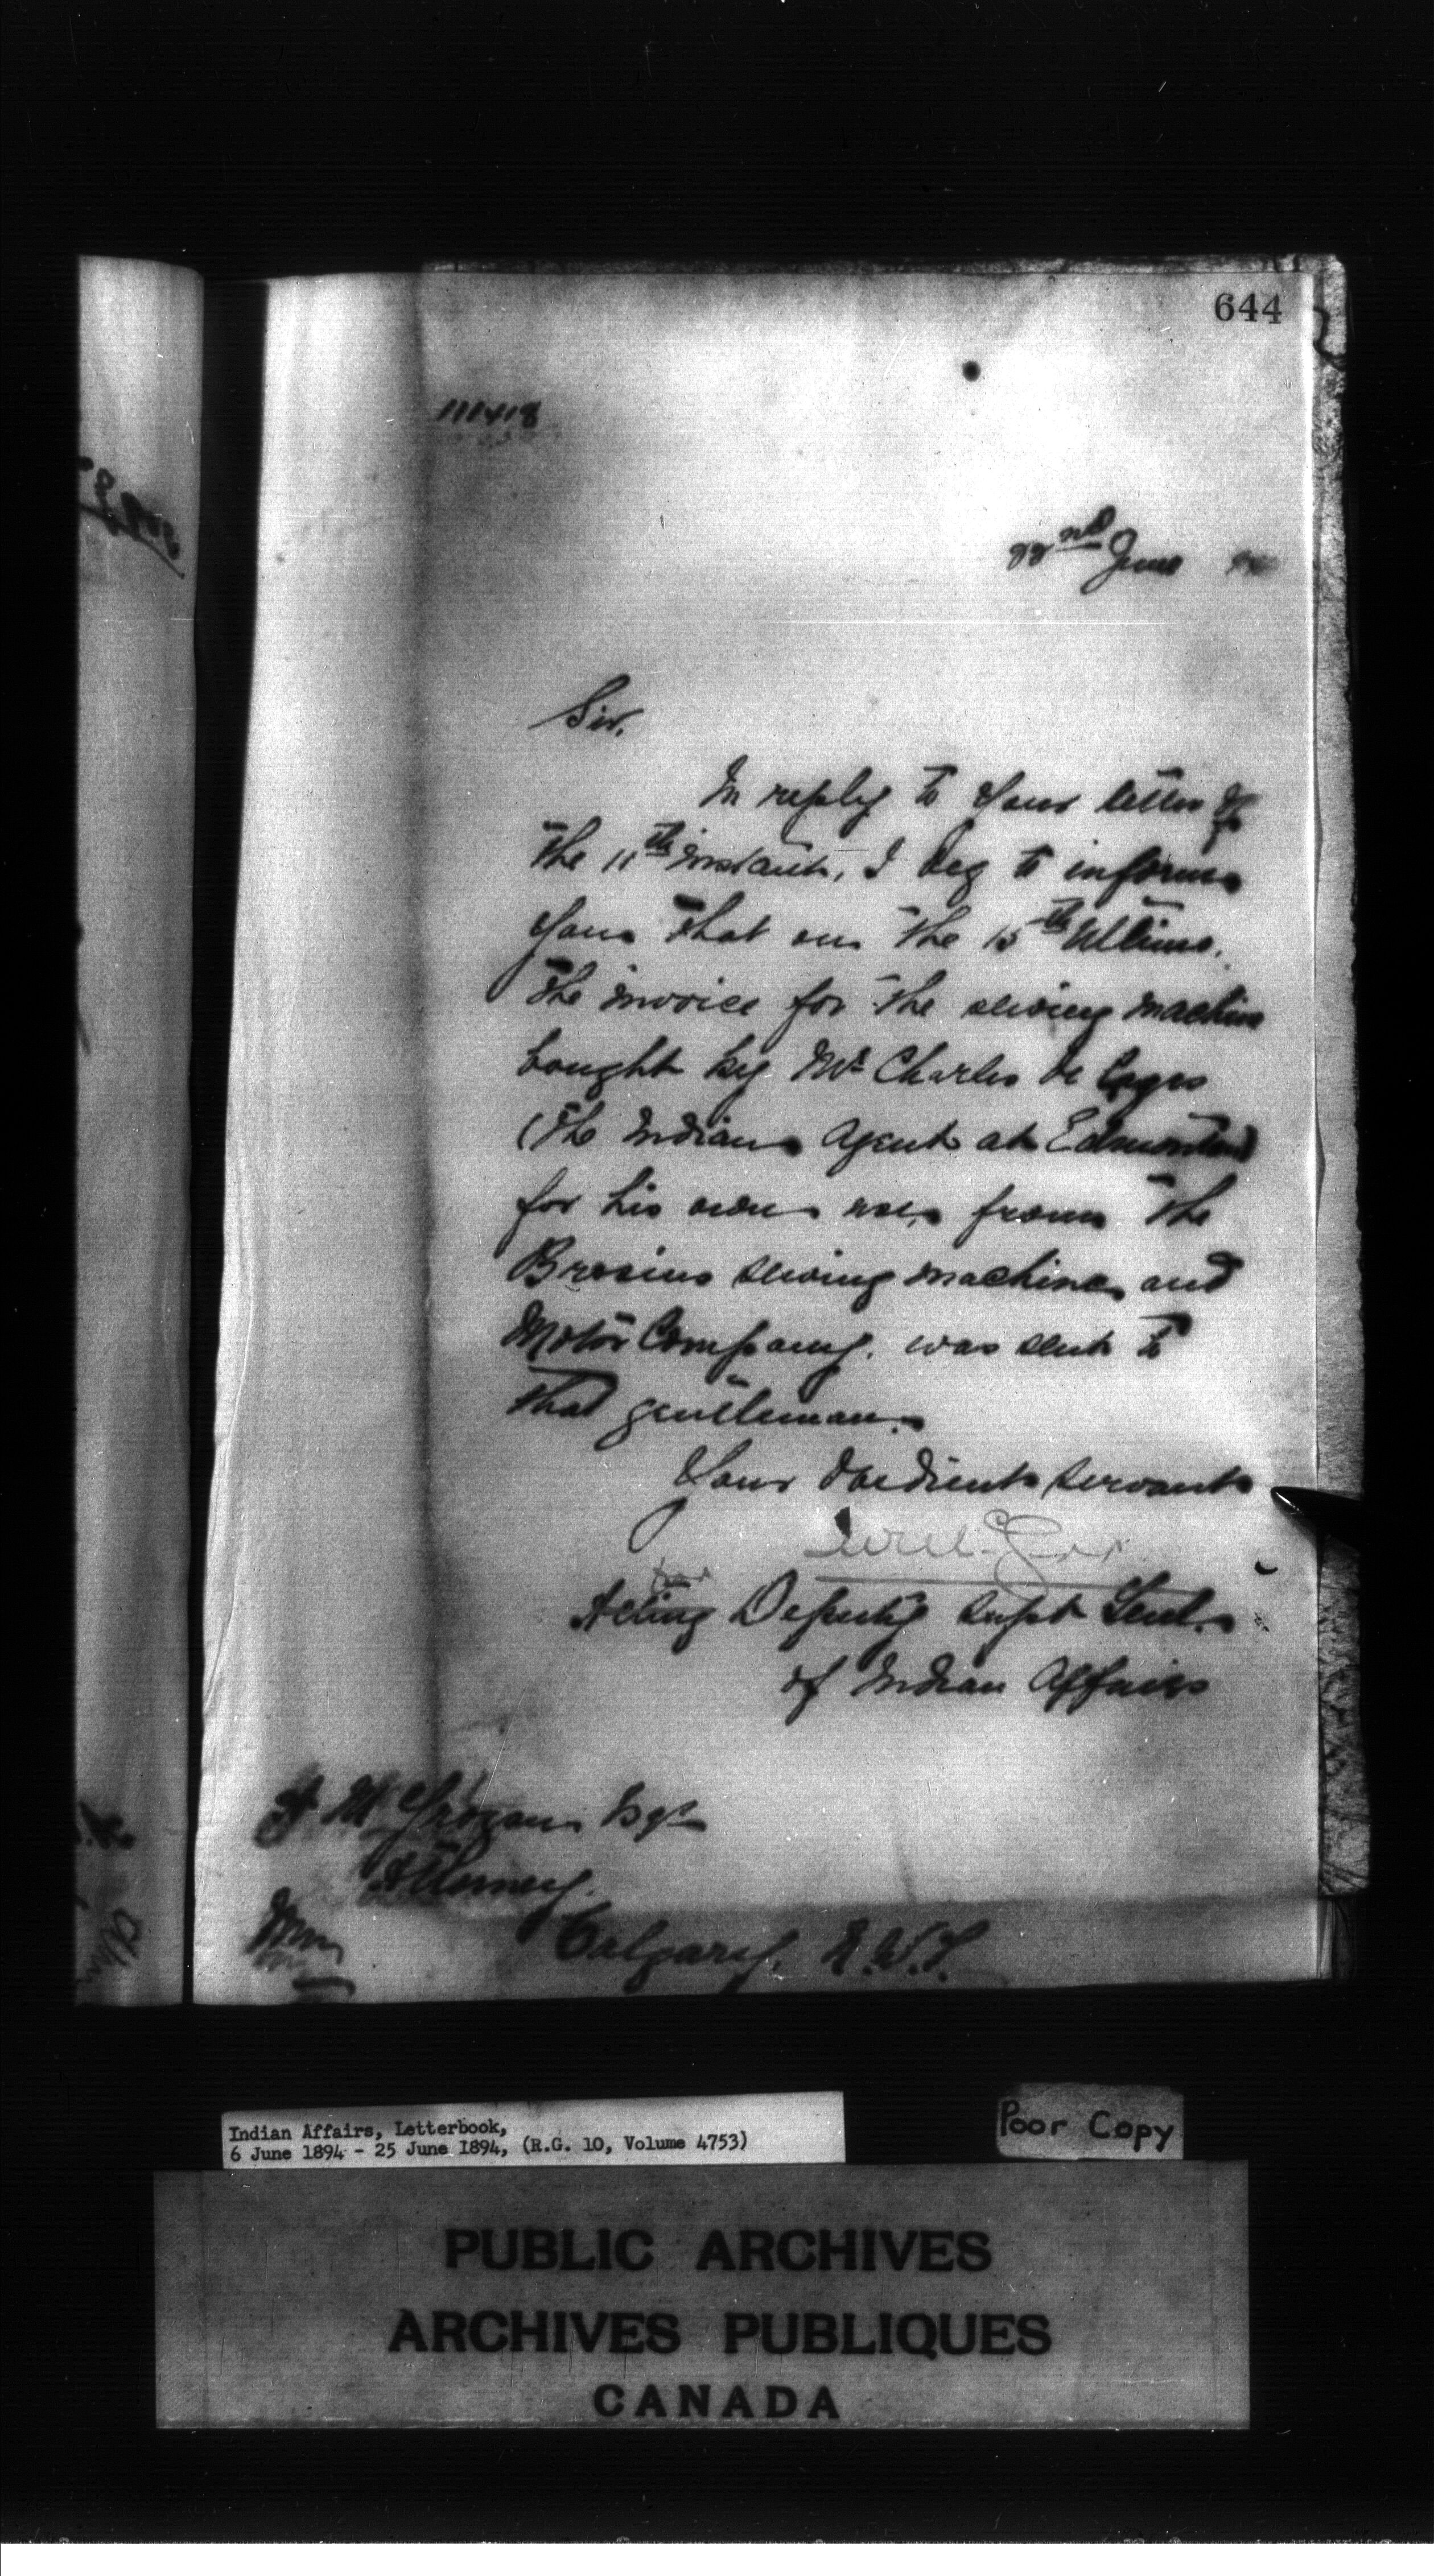 644
111418
22nd June 94
Sir,
In reply to your letter of
the 11th instant, I beg to inform
you that on the 15th Ultimo,
the invoice for the sewing machine
bought by Mr Charles de Cazes
(the Indian Agent at Edmonton)
for his own use, from the
Brosius sewing machine and
Motor Company, was sent to
that gentleman.
Your obedient servant
for
Acting Deputy Supt Genl.
of Indian Affairs
Grogan Esqr
Attorney.
Calgary, N.W.T.
Indian Affairs, Letterbook,
6 June 1894 - 25 June 1894, (R.G. 10, Volume 4753)
Poor Copy
PUBLIC ARCHIVES
ARCHIVES PUBLIQUES
CANADA